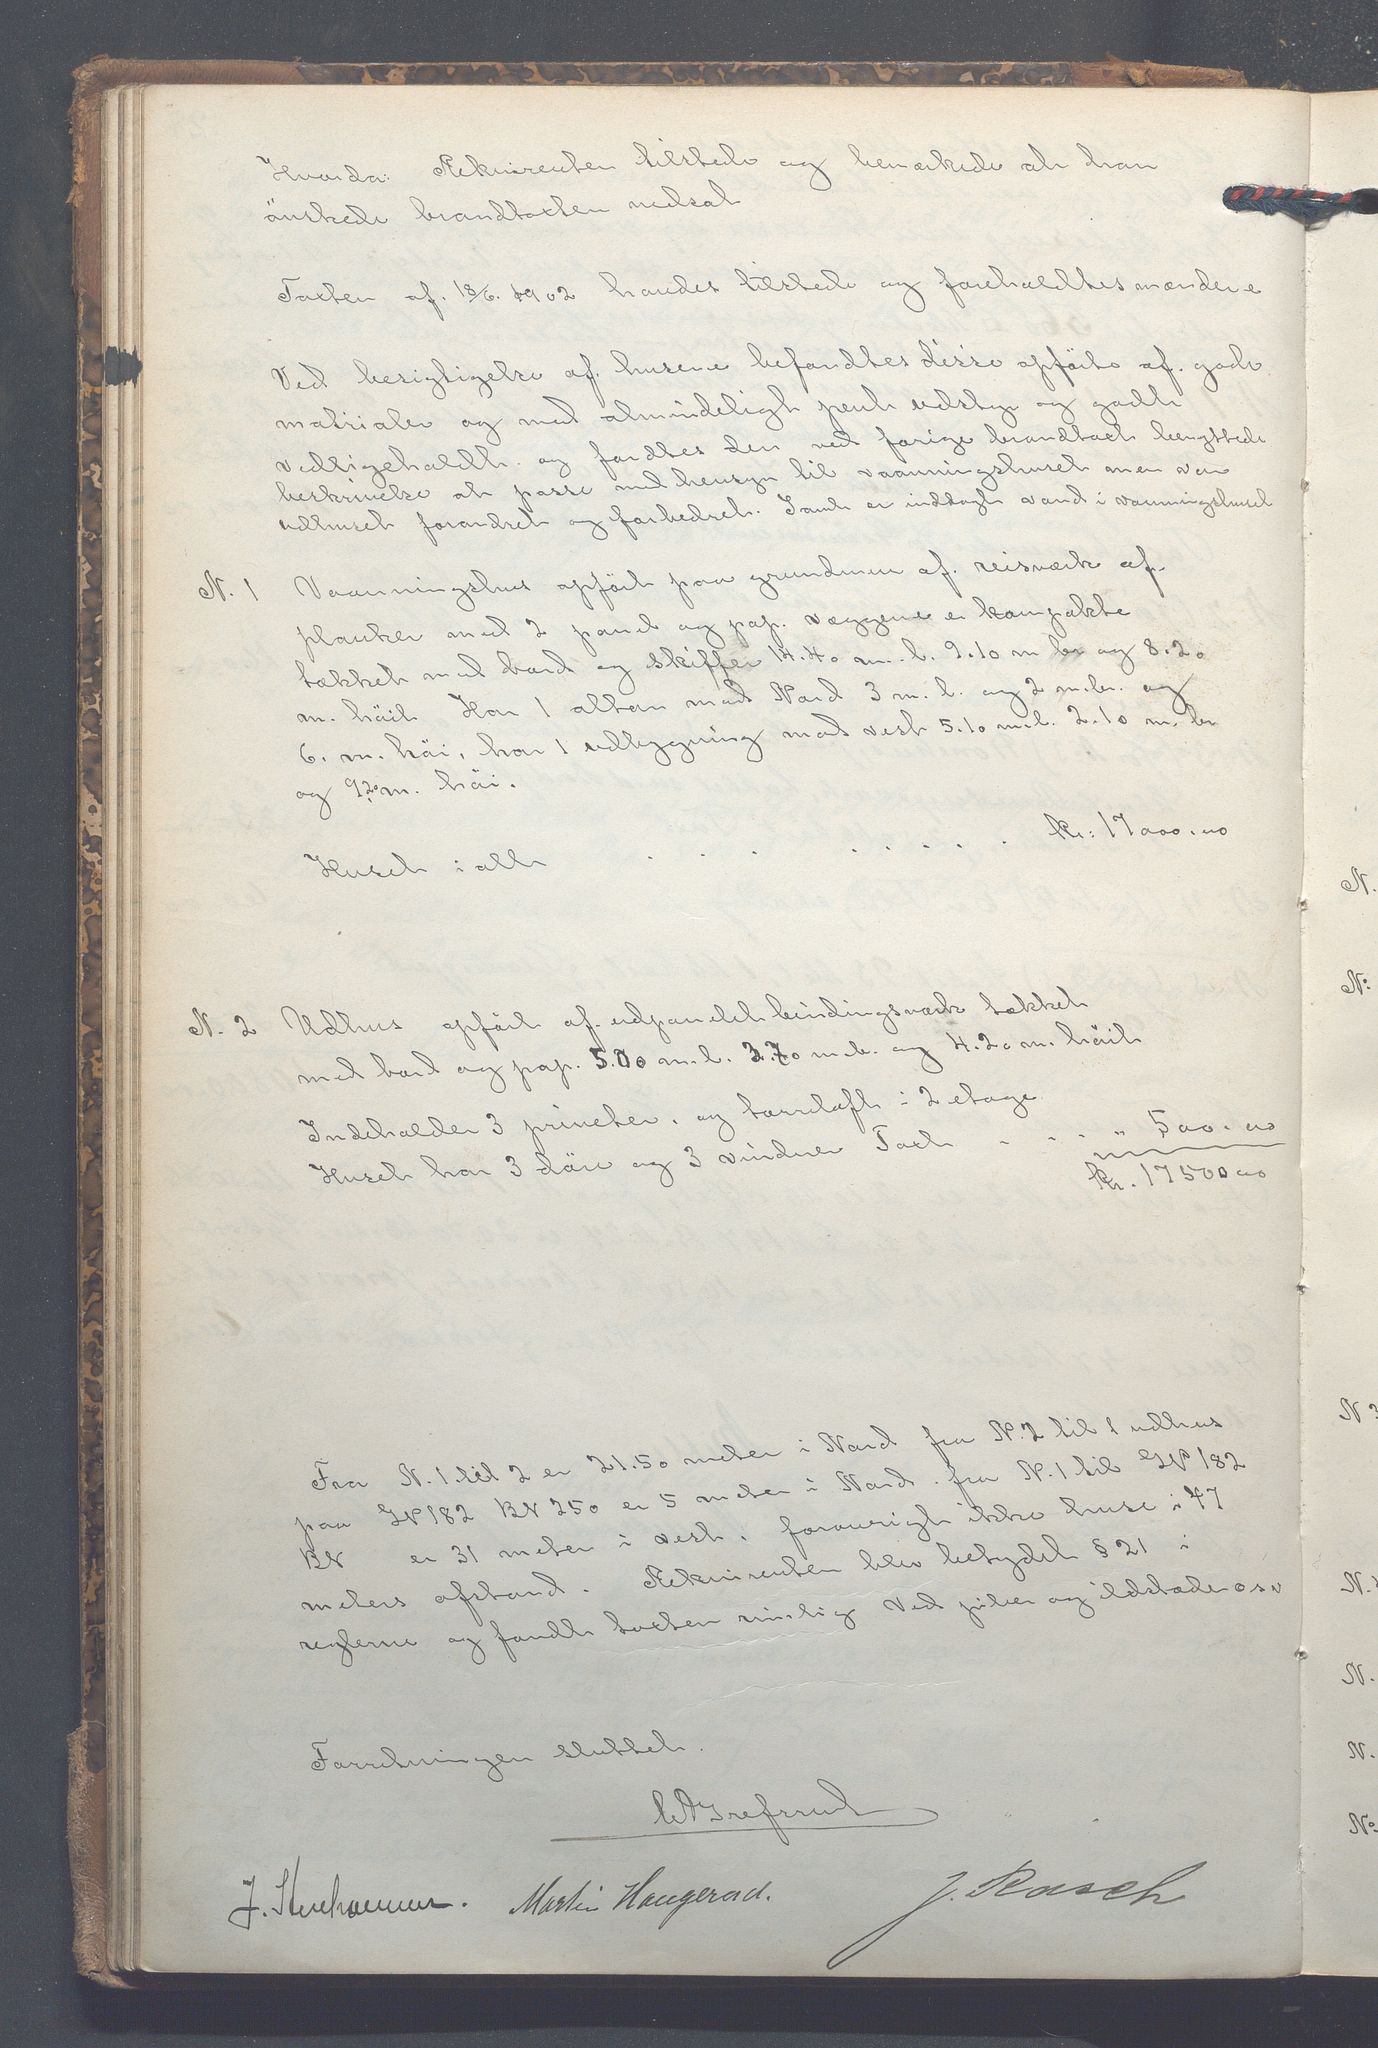 Hvorda: Rekvirenten tilstede og bemærkede at han
önskede brandtaxten nedsat
Taxten af. 18/6. 1902 havdes tilstede og foreholdtes mændene
Ved besigtigelse af. husene befandtes disse opförte af. gode
matrialer og med almindeligt pent udstyr og godt
vedligeholdt. og fandtes den ved forige brandtaxt benyttede
beskrivelse at passe med hensyn til vaaningshuset men var
udhuset forandret og forbedret. Samt er indtagt vand i vaaningshuset
N. 1 Vaaningshus opfört paa grundmur af. reisværk af.
planker med 2 panel og pap. væggene er kompakte
tækket med bord og skiffer 14.40 m. l. 9.10 m br og 8.20
m. höit Har 1 altan mod Nord 3 m. l. og 2 m. br. og
6. m. höi, har 1 udbygning mod vest 5.10 m. l. 2.10 m. br
og 9.20 m. höi.
Huset i alt . . . . . . . . Kr: 17000.00
N. 2 Udhus opfört af. udpanelet bindingsværk tækket
med bord og pap. 5.00 m. l. 3.70 m. b. og 4.20 m. höit
Indeholder 3 priveter, og tørreloft i 2 etage.
Huset har 3 döre og 3 vinduer Taxt . . . " 500.00
Kr. 17500 00
Fra N. 1 til 2 er 21.50 meter i Nord fra N. 2 til 1 udhus
paa GN 182 BN 250 er 5 meter i Nord. fra N. 1 til GN 182
BN er 31 meter i vest. forøvrigt ikke huse i 47
meters afstand. Rekvirenten blev betydet § 21 i
reglerne og fandt taxten rimlig Ved piber og ildstæder osv
Forretningen sluttet.
J. Martin Haugerud. J. Rasch